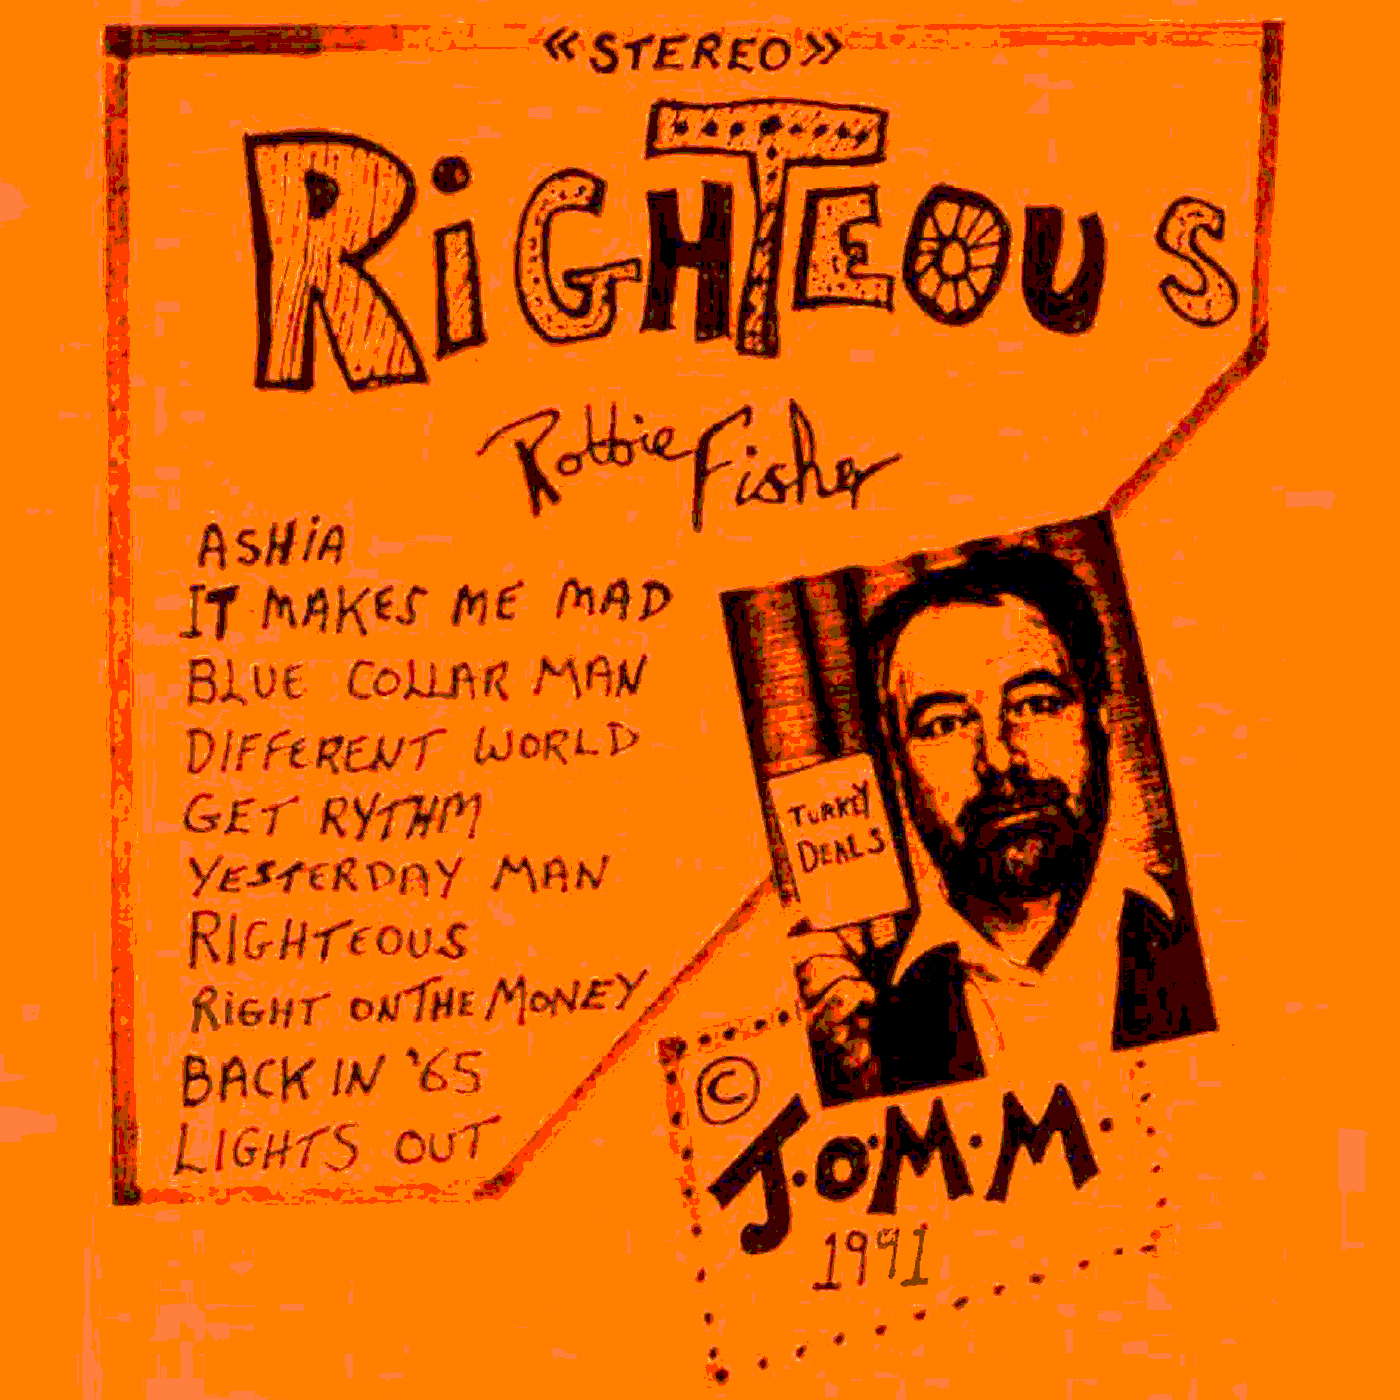 «STEREO»
RiGHTEOUS
Robbie Fisher
ASHiA
IT MAKES ME MAD
BLUE COLLAR MAN
DIFFERENT WORLD
GET RYTHM
YESTERDAY MAN
RIGHTEOUS
RiGHT ON THE MONEY
BACK IN '65
LIGHTS OUT
TURKEY
DEALS
©
J.O.M.M.
1991